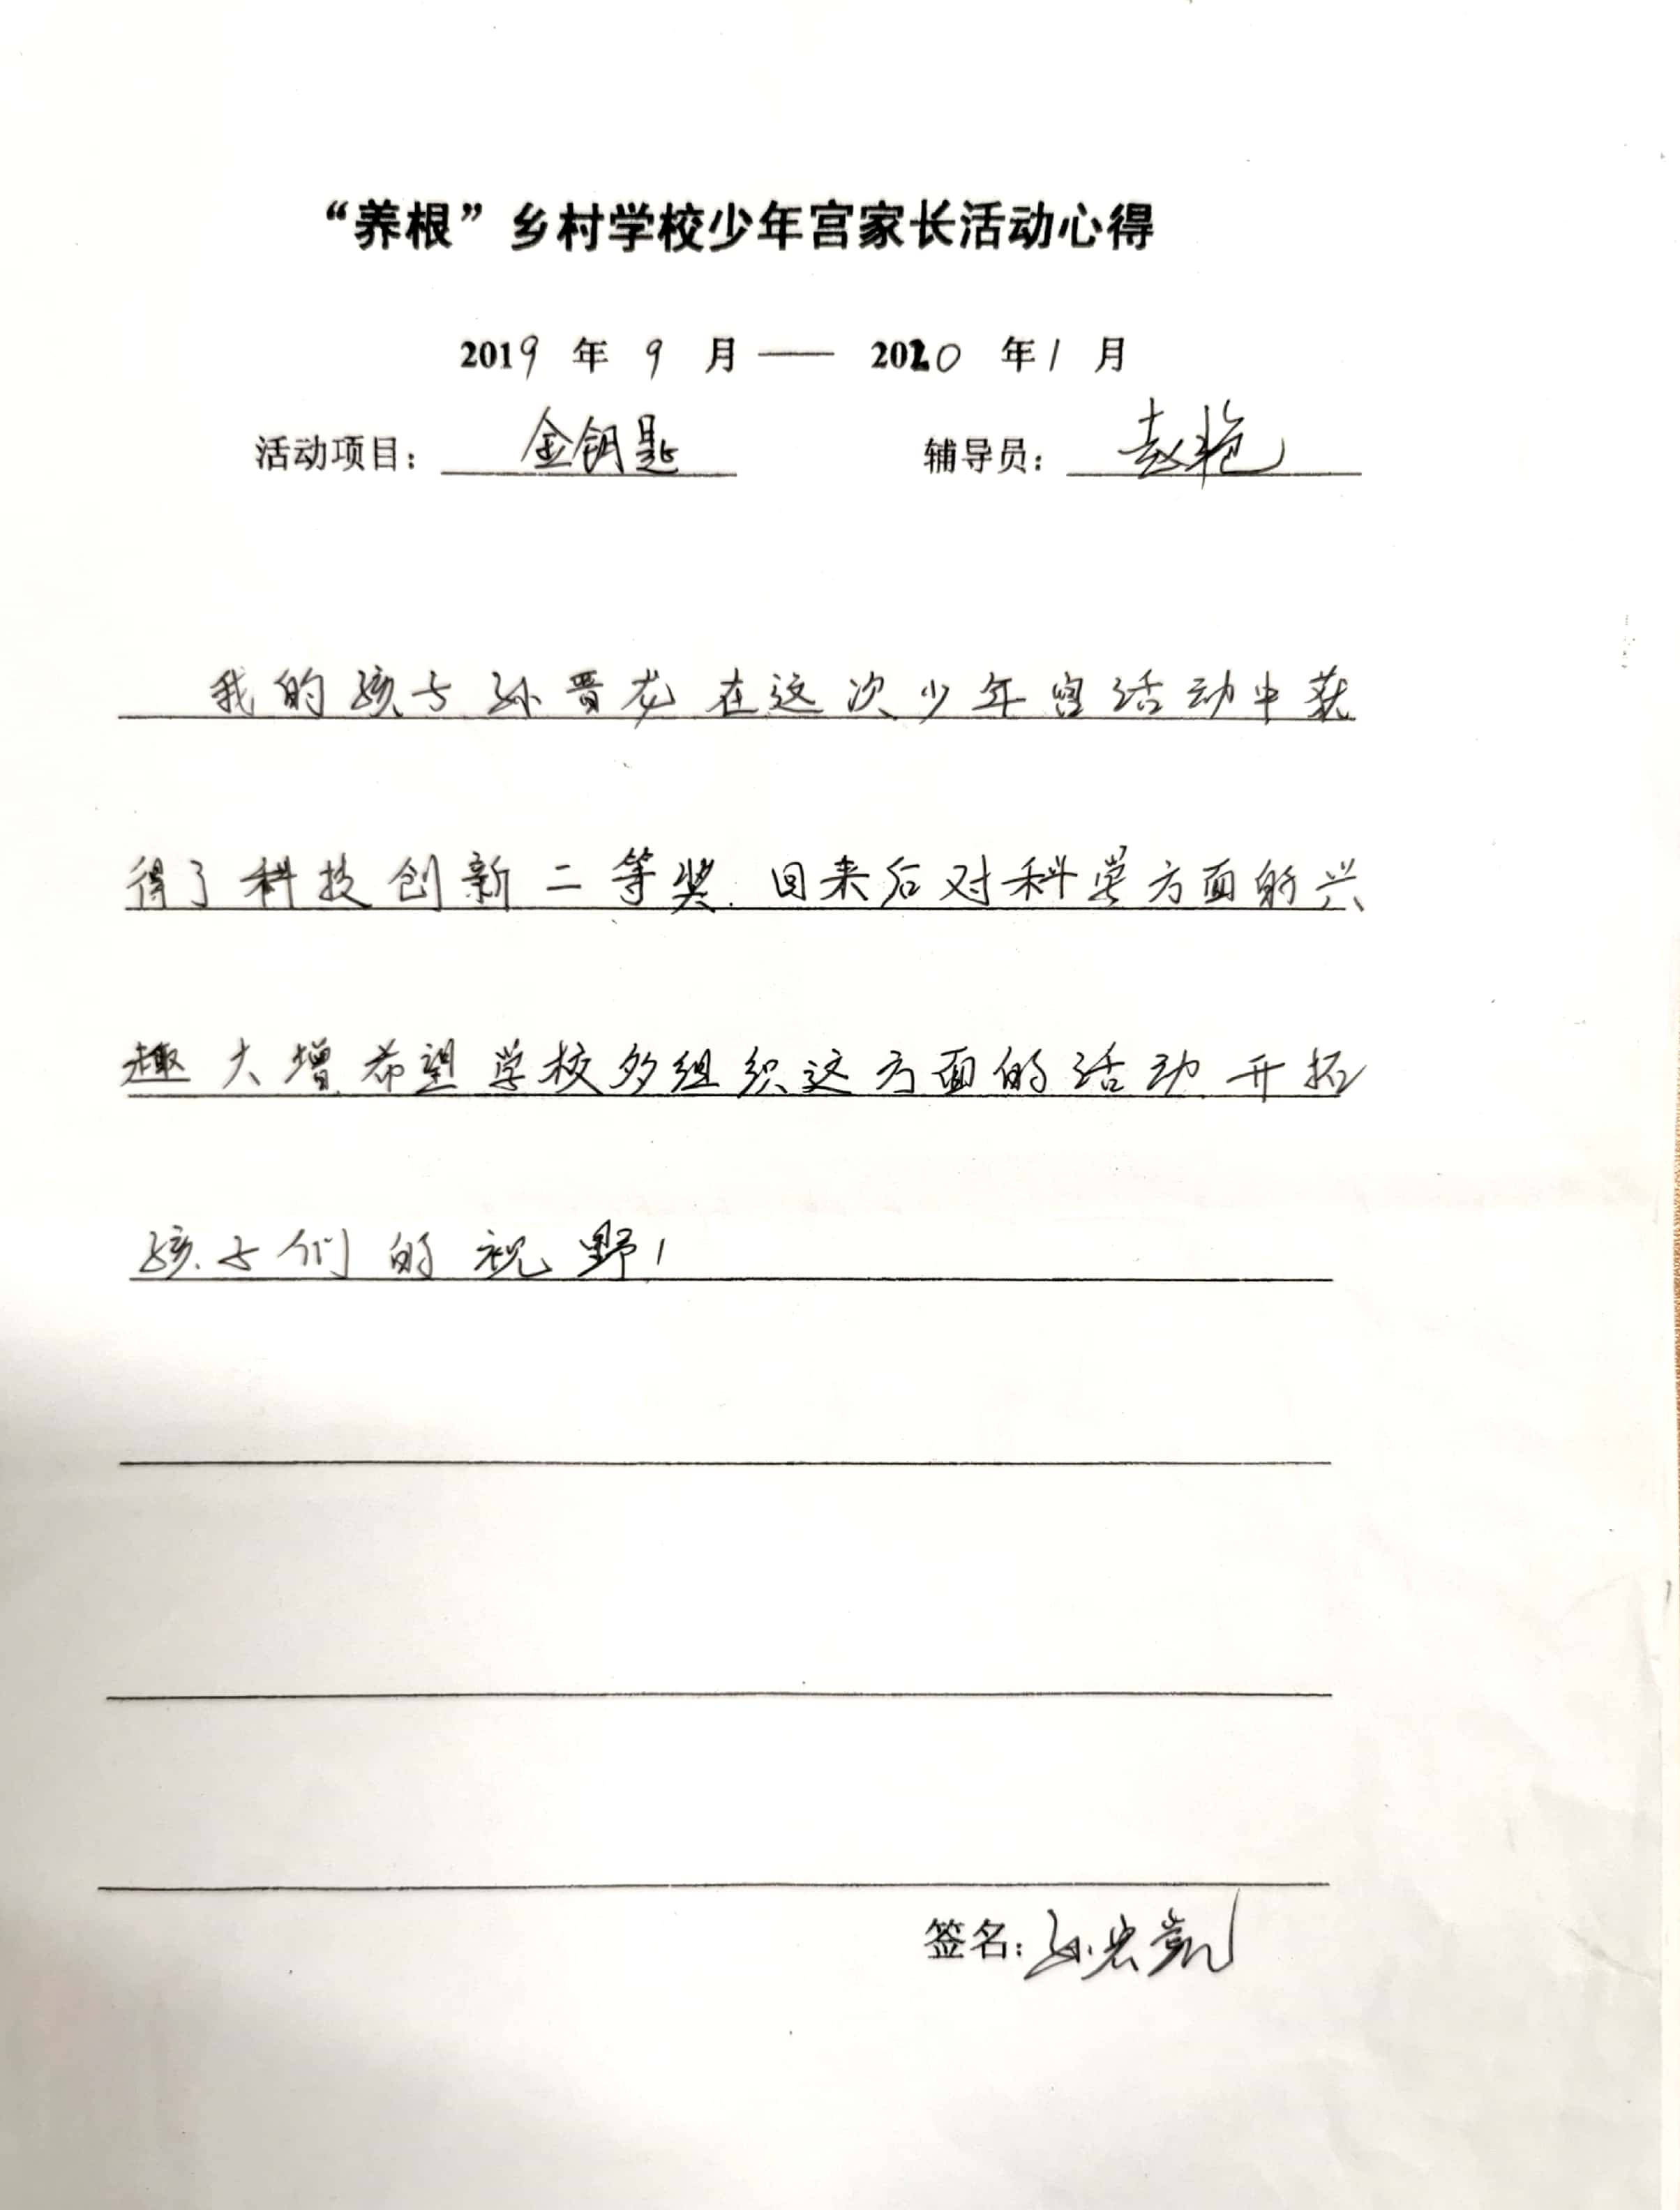 “养根”乡村学校少年宫家长活动心得
2019 年 9 月 —— 2020 年 1 月
活动项目： 金钥匙 辅导员： 赵艳
我的孩子孙晋龙在这次少年宫活动中获
得了科技创新二等奖.回来后对科学方面的兴
趣大增.希望学校多组织这方面的活动.开拓
孩子们的视野！
签名：孙宏凯